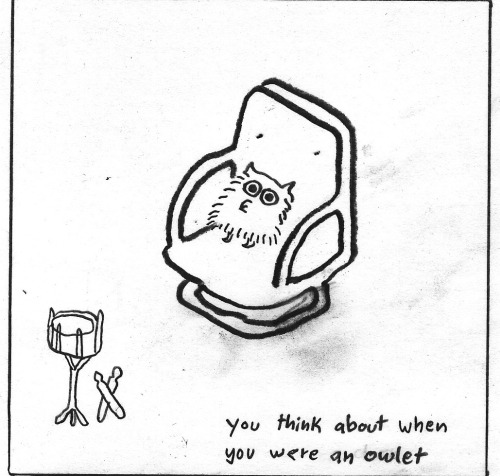 you think about when
you were an owlet